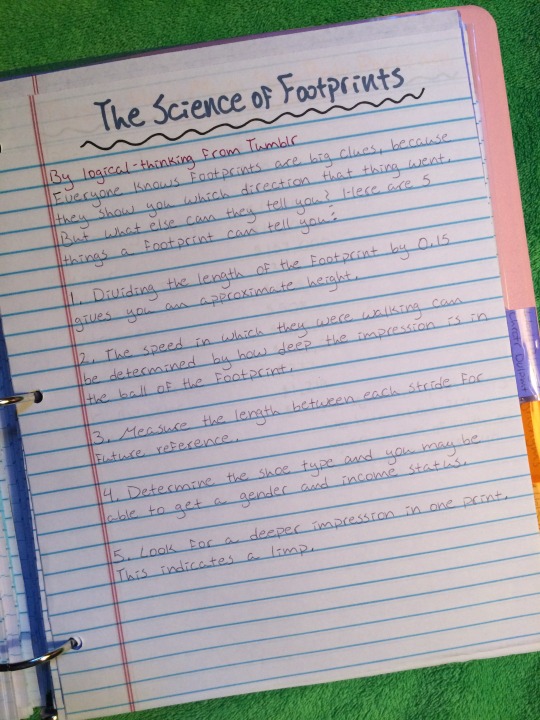 The Science of Footprints
By logical-thinking from Tumblr
Everyone knows footprints are big clues, because
they show you which direction that thing went.
But what else can they tell you? Here are 5
things a footprint can tell you:
1. Dividing the length of the footprint by 0.15
gives you an approximate height.
2. The speed in which they were walking can
be determined by how deep the impression is in
the ball of the footprint.
3. Measure the length between each stride for
future reference.
4. Determine the shoe type and you may be
able to get a gender and income status.
5. Look for a deeper impression in one print.
This indicates a limp.